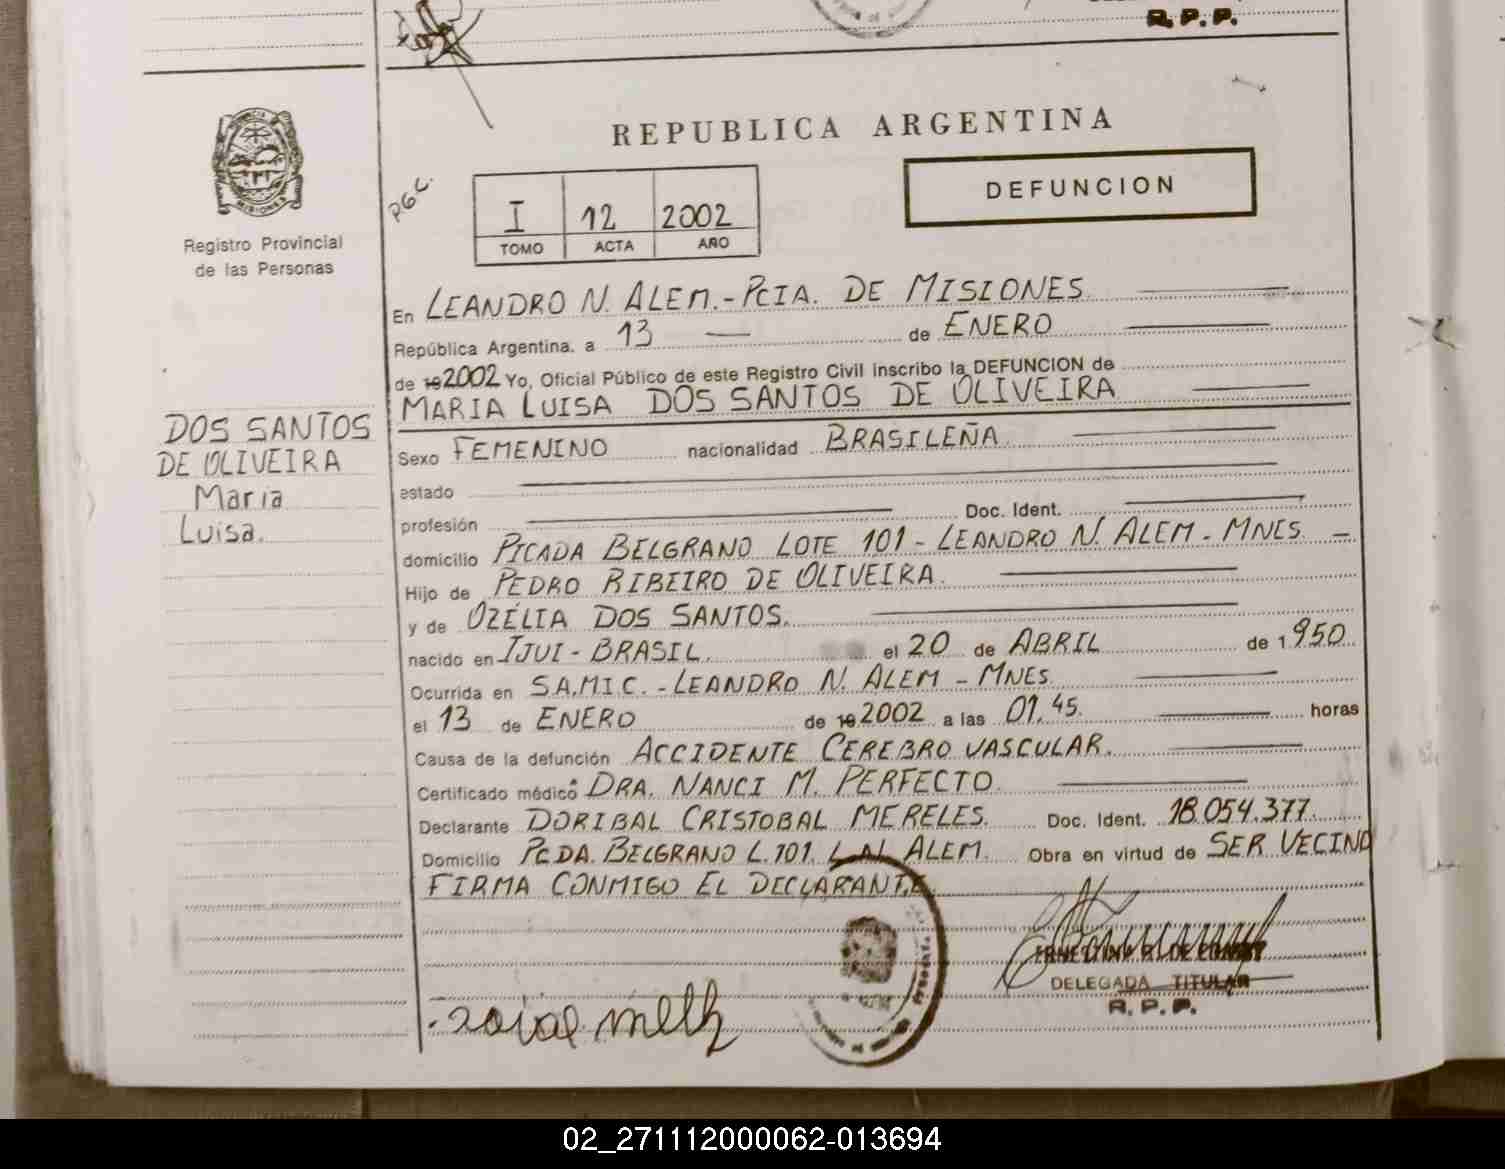 R.P.P.
REPUBLICA ARGENTINA
DEFUNCION
PROVINCIA DE
MISIONES
Registro Provincial
de las Personas
I 12 2002
TOMO ACTA AÑO
En LEANDRO N. ALEM.-PCIA. DE MISIONES
República Argentina. a 13 — de ENERO
de 192002 Yo, Oficial Público de este Registro Civil inscribo la DEFUNCION de
MARIA LUISA DOS SANTOS DE OLIVEIRA
DOS SANTOS
DE OLIVEIRA
Maria
Luisa.
Sexo FEMENINO nacionalidad BRASILEÑA
estado
profesión Doc. Ident.
domicilio PICADA BELGRANO LOTE 101 - LEANDRO N. ALEM - MNES. -
Hijo de PEDRO RIBEIRO DE OLIVEIRA.
y de OZÉLIA DOS SANTOS.
nacido en IJUI - BRASIL. el 20 de ABRIL de 1950
Ocurrida en S.A.M.I.C. - LEANDRO N. ALEM - MNES.
el 13 de ENERO de 192002 a las 01,45. horas
Causa de la defunción ACCIDENTE CEREBRO VASCULAR.
Certificado médico DRA. NANCI M. PERFECTO
Declarante DORIBAL CRISTOBAL MERELES. Doc. Ident. 18.054.377
Domicilio PCDA. BELGRANO L. 101. L.N. ALEM. Obra en virtud de SER VECINO
FIRMA CONMIGO EL DECLARANTE
DELEGADA TITULAR
R.P.P.
02_271112000062-013694